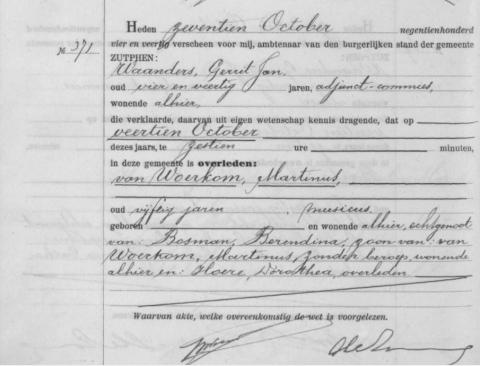 Heden zeventien October negentienhonderd
No 371 vier en veertig verscheen voor mij, ambtenaar van den burgerlijken stand der gemeente
ZUTPHEN:
Waanders, Gerrit Jan.
oud vier en veertig jaren, adjunct-commies,
wonende alhier,
die verklaarde, daarvan uit eigen wetenschap kennis dragende, dat op
veertien October
dezes jaars, te zestien ure minuten,
in deze gemeente is overleden:
van Woerkom, Martinus,
oud vijftig jaren , musicus.
geboren en wonende alhier, echtgenoot
van: Bosman, Berendina, zoon van: van
Woerkom, Martinus, zonder beroep, wonende
alhier en: Hoere, Dorothea, overleden
Waarvan akte, welke overeenkomstig de wet is voorgelezen.